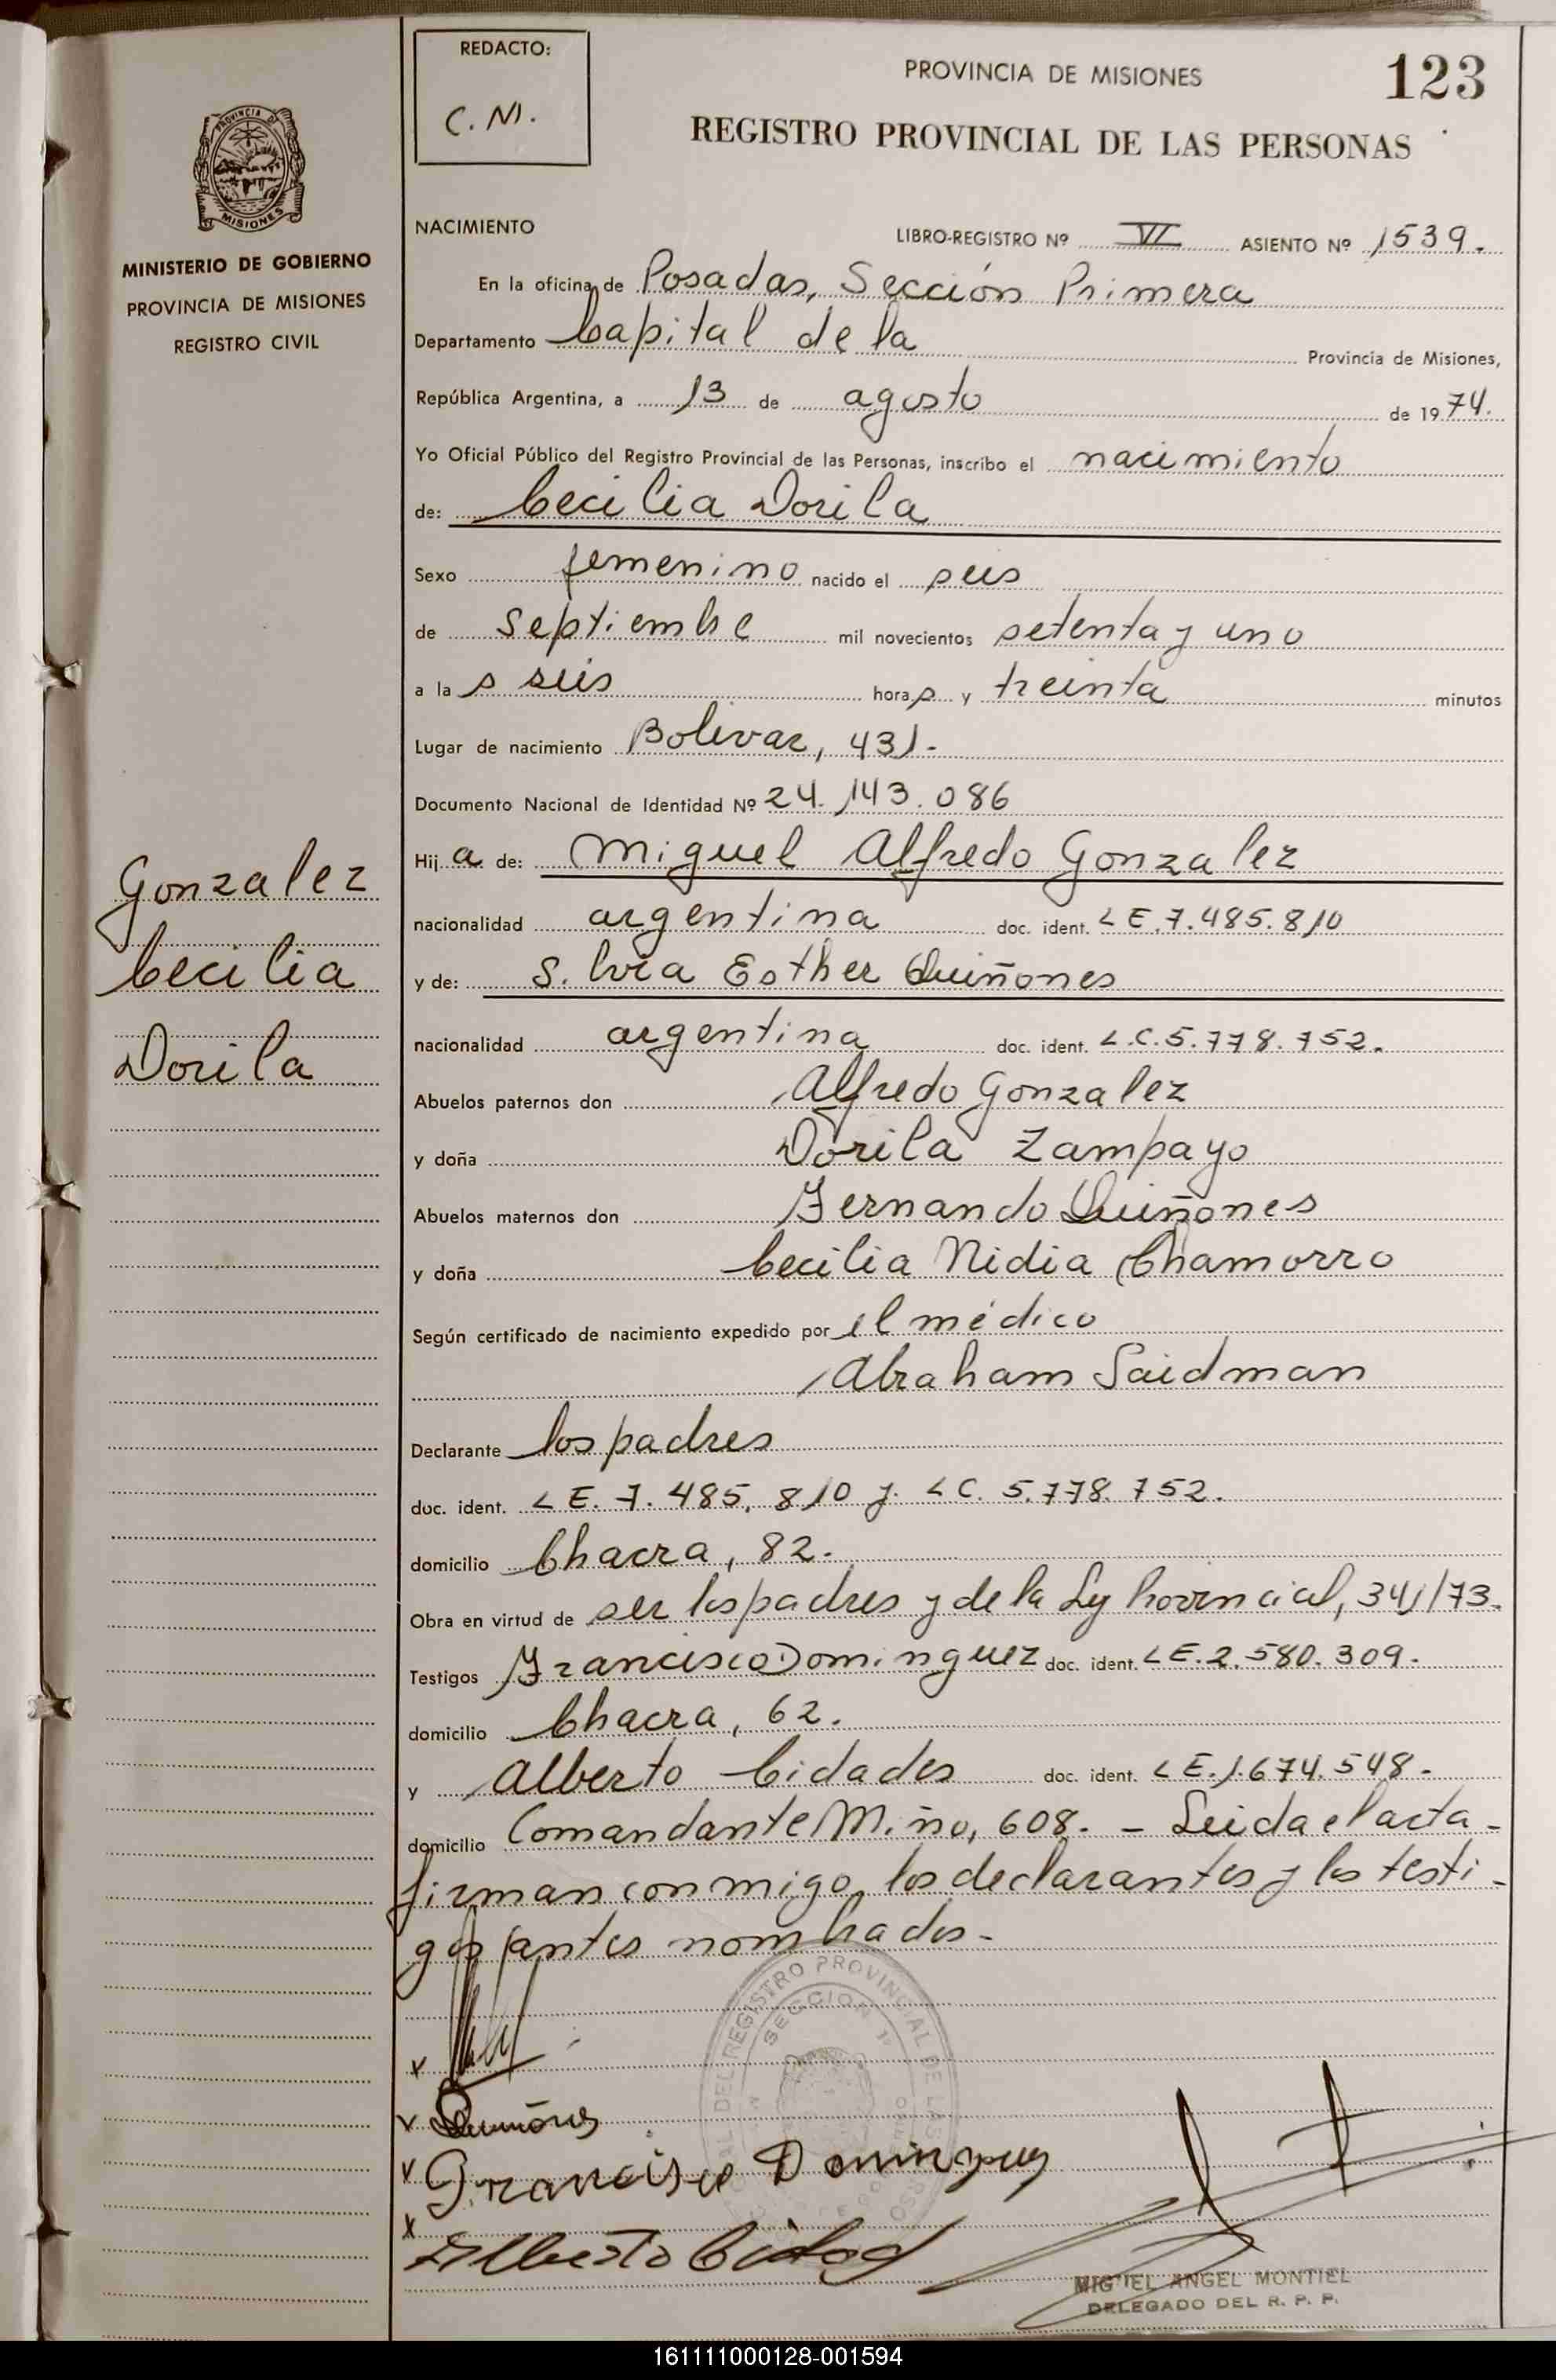 REDACTO:
C. M.
PROVINCIA DE MISIONES
123
REGISTRO PROVINCIAL DE LAS PERSONAS
PROVINCIA DE
MISIONES
MINISTERIO DE GOBIERNO
PROVINCIA DE MISIONES
REGISTRO CIVIL
NACIMIENTO
LIBRO-REGISTRO Nº VI ASIENTO Nº 1539.
En la oficina de Posadas, Sección Primera
Departamento Capital de la Provincia de Misiones,
República Argentina, a 13 de agosto de 1974.
Yo Oficial Público del Registro Provincial de las Personas, inscribo el nacimiento
de: Cecilia Dorila
Sexo femenino nacido el seis
de septiembre mil novecientos setenta y uno
a la s seis horas y treinta minutos
Lugar de nacimiento Bolivar, 431.
Documento Nacional de Identidad Nº 24.143.086
Hija de: Miguel Alfredo Gonzalez
nacionalidad argentina doc. ident. LE.7.485.810
y de: Silvia Esther Quiñones
nacionalidad argentina doc. ident. L.C.5.778.752.
Abuelos paternos don Alfredo Gonzalez
y doña Dorila Zampayo
Abuelos maternos don Fernando Quiñones
y doña Cecilia Nidia Chamorro
Según certificado de nacimiento expedido por el médico
Abraham Saidman
Declarante los padres
doc. ident. LE. 7.485.810 y LC. 5.778.752.
domicilio Chacra, 82.
Obra en virtud de ser los padres y de la Ley Provincial, 341/73.
Testigos Francisco Dominguez doc. ident. LE.2.580.309.
domicilio Chacra, 62.
y Alberto Cidades doc. ident. LE.1.674.548.
domicilio Comandante Miño, 608. - Leida el acta -
firman conmigo los declarantes y los testi-
gos antes nombrados.
Gonzalez
Cecilia
Dorila
DEL REGISTRO PROVINCIAL DE LAS
SECCION 1ª
x
v Quiñones
v Francisco Dominguez
x Alberto Cidad
MIGUEL ANGEL MONTIEL
DELEGADO DEL R. P. P.
161111000128-001594